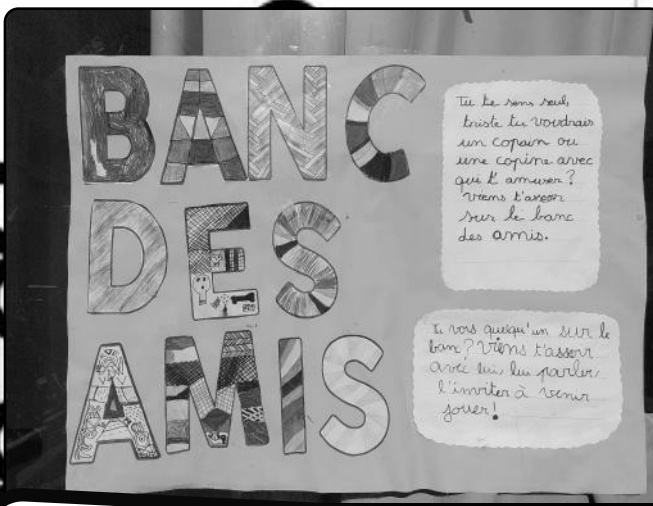 BANC
DES
AMIS
Tu te sens seul,
triste tu voudrais
un copain ou
une copine avec
qui t'amuser?
viens t'asseoir
sur le banc
des amis.
Tu vois quelqu'un sur le
banc? Viens t'assoir
avec lui, lui parler,
l'inviter à venir
jouer!